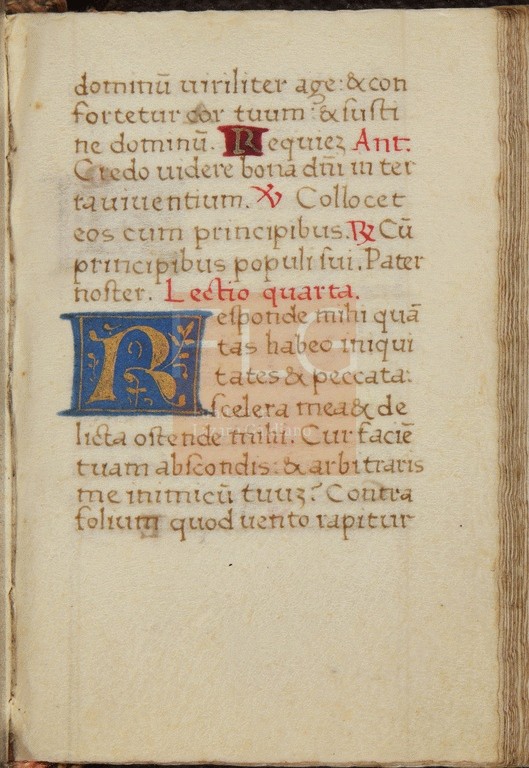 dominū viriliter age: & con
fortetur cor tuum: & susti
ne dominū. Requiez Ant.
Credo videre bona dn̄i in ter
ra viventium. ℣ Collocet
eos cum principibus. ℟ Cū
principibus populi sui. Pater
noster. Lectio quarta.
Responde mihi quā
tas habeo iniqui
tates & peccata:
scelera mea & de
licta ostende mihi. Cur faciē
tuam abscondis: & arbitraris
me inimicū tuuz? Contra
folium quod vento rapitur